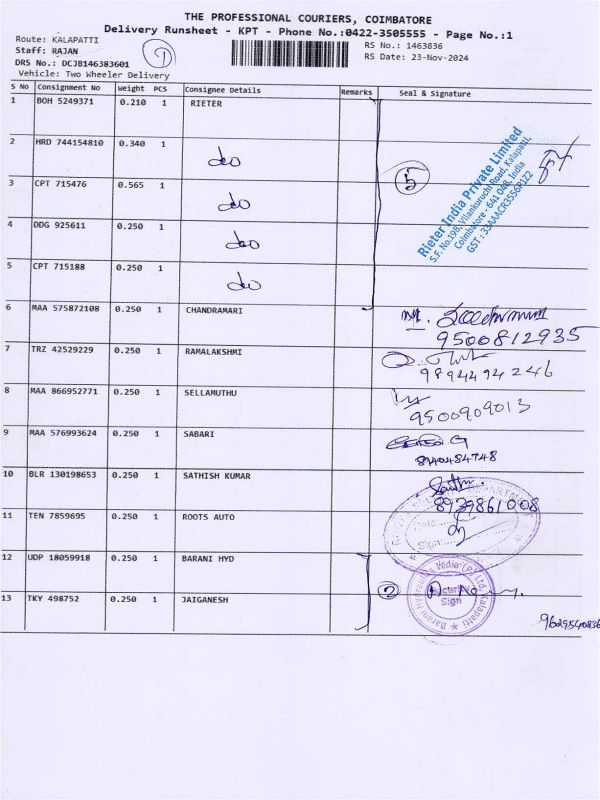 THE PROFESSIONAL COURIERS, COIMBATORE
Delivery Runsheet - KPT - Phone No.:0422-3505555 - Page No.:1
Route: KALAPATTI
RS No.: 1463836
Staff: RAJAN
1
RS Date: 23-Nov-2024
DRS No.: DCJB146383601
Vehicle: Two Wheeler Delivery
S No Consignment No Weight PCS Consignee Details Remarks Seal & Signature
1 BOH 5249371 0.210 1 RIETER
2 HRD 744154810 0.340 1 do
3 CPT 715476 0.565 1 do
4 DDG 925611 0.250 1 do
5 CPT 715188 0.250 1 do
5
Rieter India Private Limited
S.F. No.19/8, Vilankuruchi Road, Kalapatti,
Coimbatore - 641 048, India
GST : 33AAACR3556P1Z2
6 MAA 575872108 0.250 1 CHANDRAMARI
9500812935
7 TRZ 42529229 0.250 1 RAMALAKSHMI
9894494246
8 MAA 866952771 0.250 1 SELLAMUTHU
9500909013
9 MAA 576993624 0.250 1 SABARI
8940484748
10 BLR 130198653 0.250 1 SATHISH KUMAR
8939861008
11 TEN 7859695 0.250 1 ROOTS AUTO
Date
Sign
12 UDP 18059918 0.250 1 BARANI HYD
2
Barani Hydraulics India (P) Ltd, Kalapatti
Security
Sign
13 TKY 498752 0.250 1 JAIGANESH
9629540836